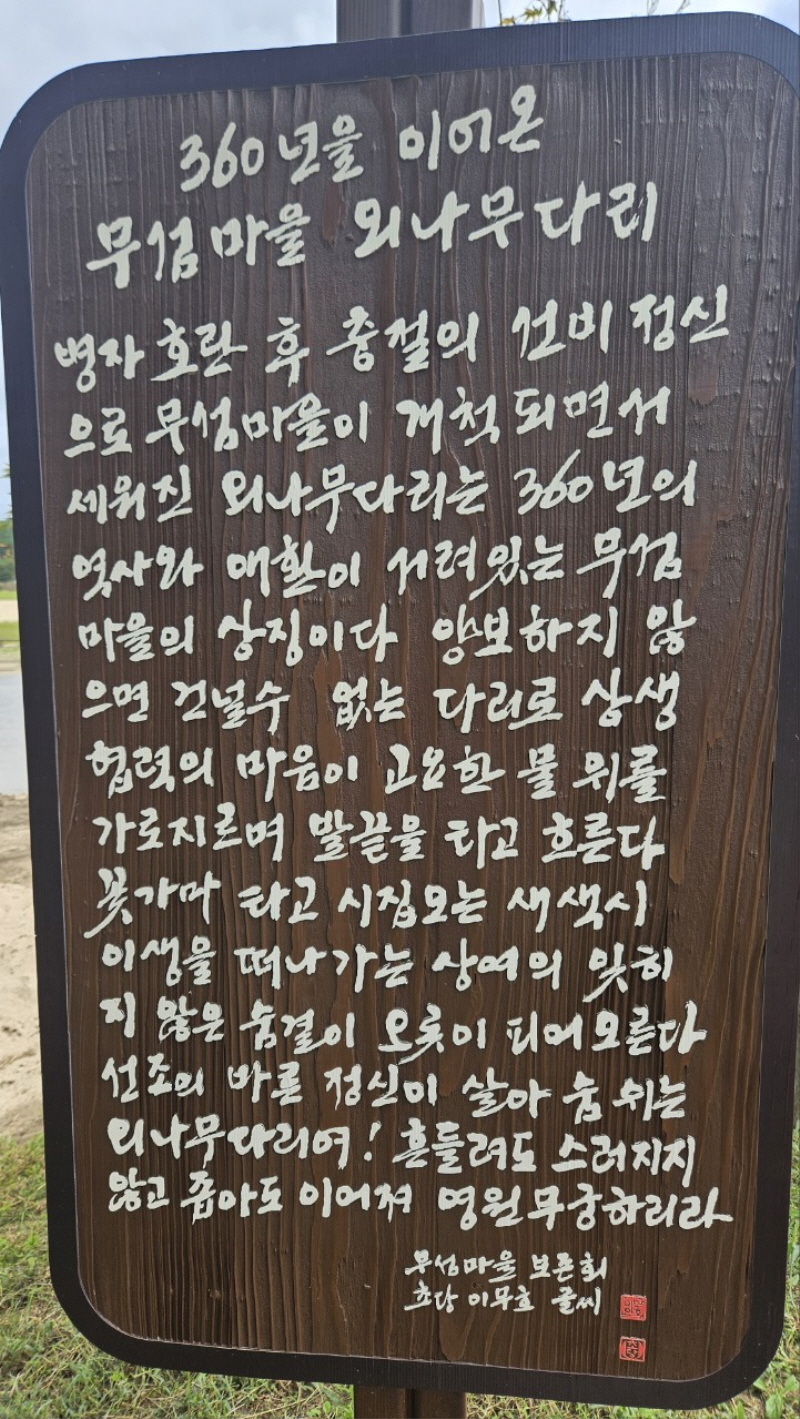 360년을 이어온
무섬마을 외나무다리
병자호란 후 충절의 선비정신
으로 무섬마을이 개척되면서
세워진 외나무다리는 360년의
역사와 애환이 서려있는 무섬
마을의 상징이다 양보하지 않
으면 건널수 없는 다리로 상생
협력의 마음이 고요한 물 위를
가로지르며 발끝을 타고 흐른다
꽃가마 타고 시집오는 새색시
이생을 떠나가는 상여의 잊히
지 않은 숨결이 오롯이 피어오른다
선조의 바른 정신이 살아 숨 쉬는
외나무다리여! 흔들려도 스러지지
않고 좁아도 이어져 영원무궁하리라
무섬마을 보존회
초당 이무호 글씨